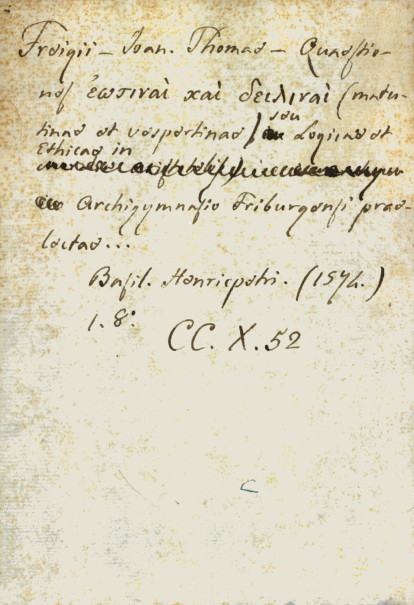 Freigii - Ioan. Thomae - Quaestio-
nes ἑωθιναὶ καὶ δειλιναὶ (matu-
tinae et vespertinae) seu Logicae et
Ethicae in
Archigymnasio Friburgensi prae-
lectae...
Basil. Henricpetri. (1574.)
1. 8°.
CC. X. 52